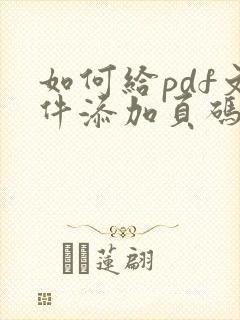 如何給pdf文
件添加頁碼
蓮翩